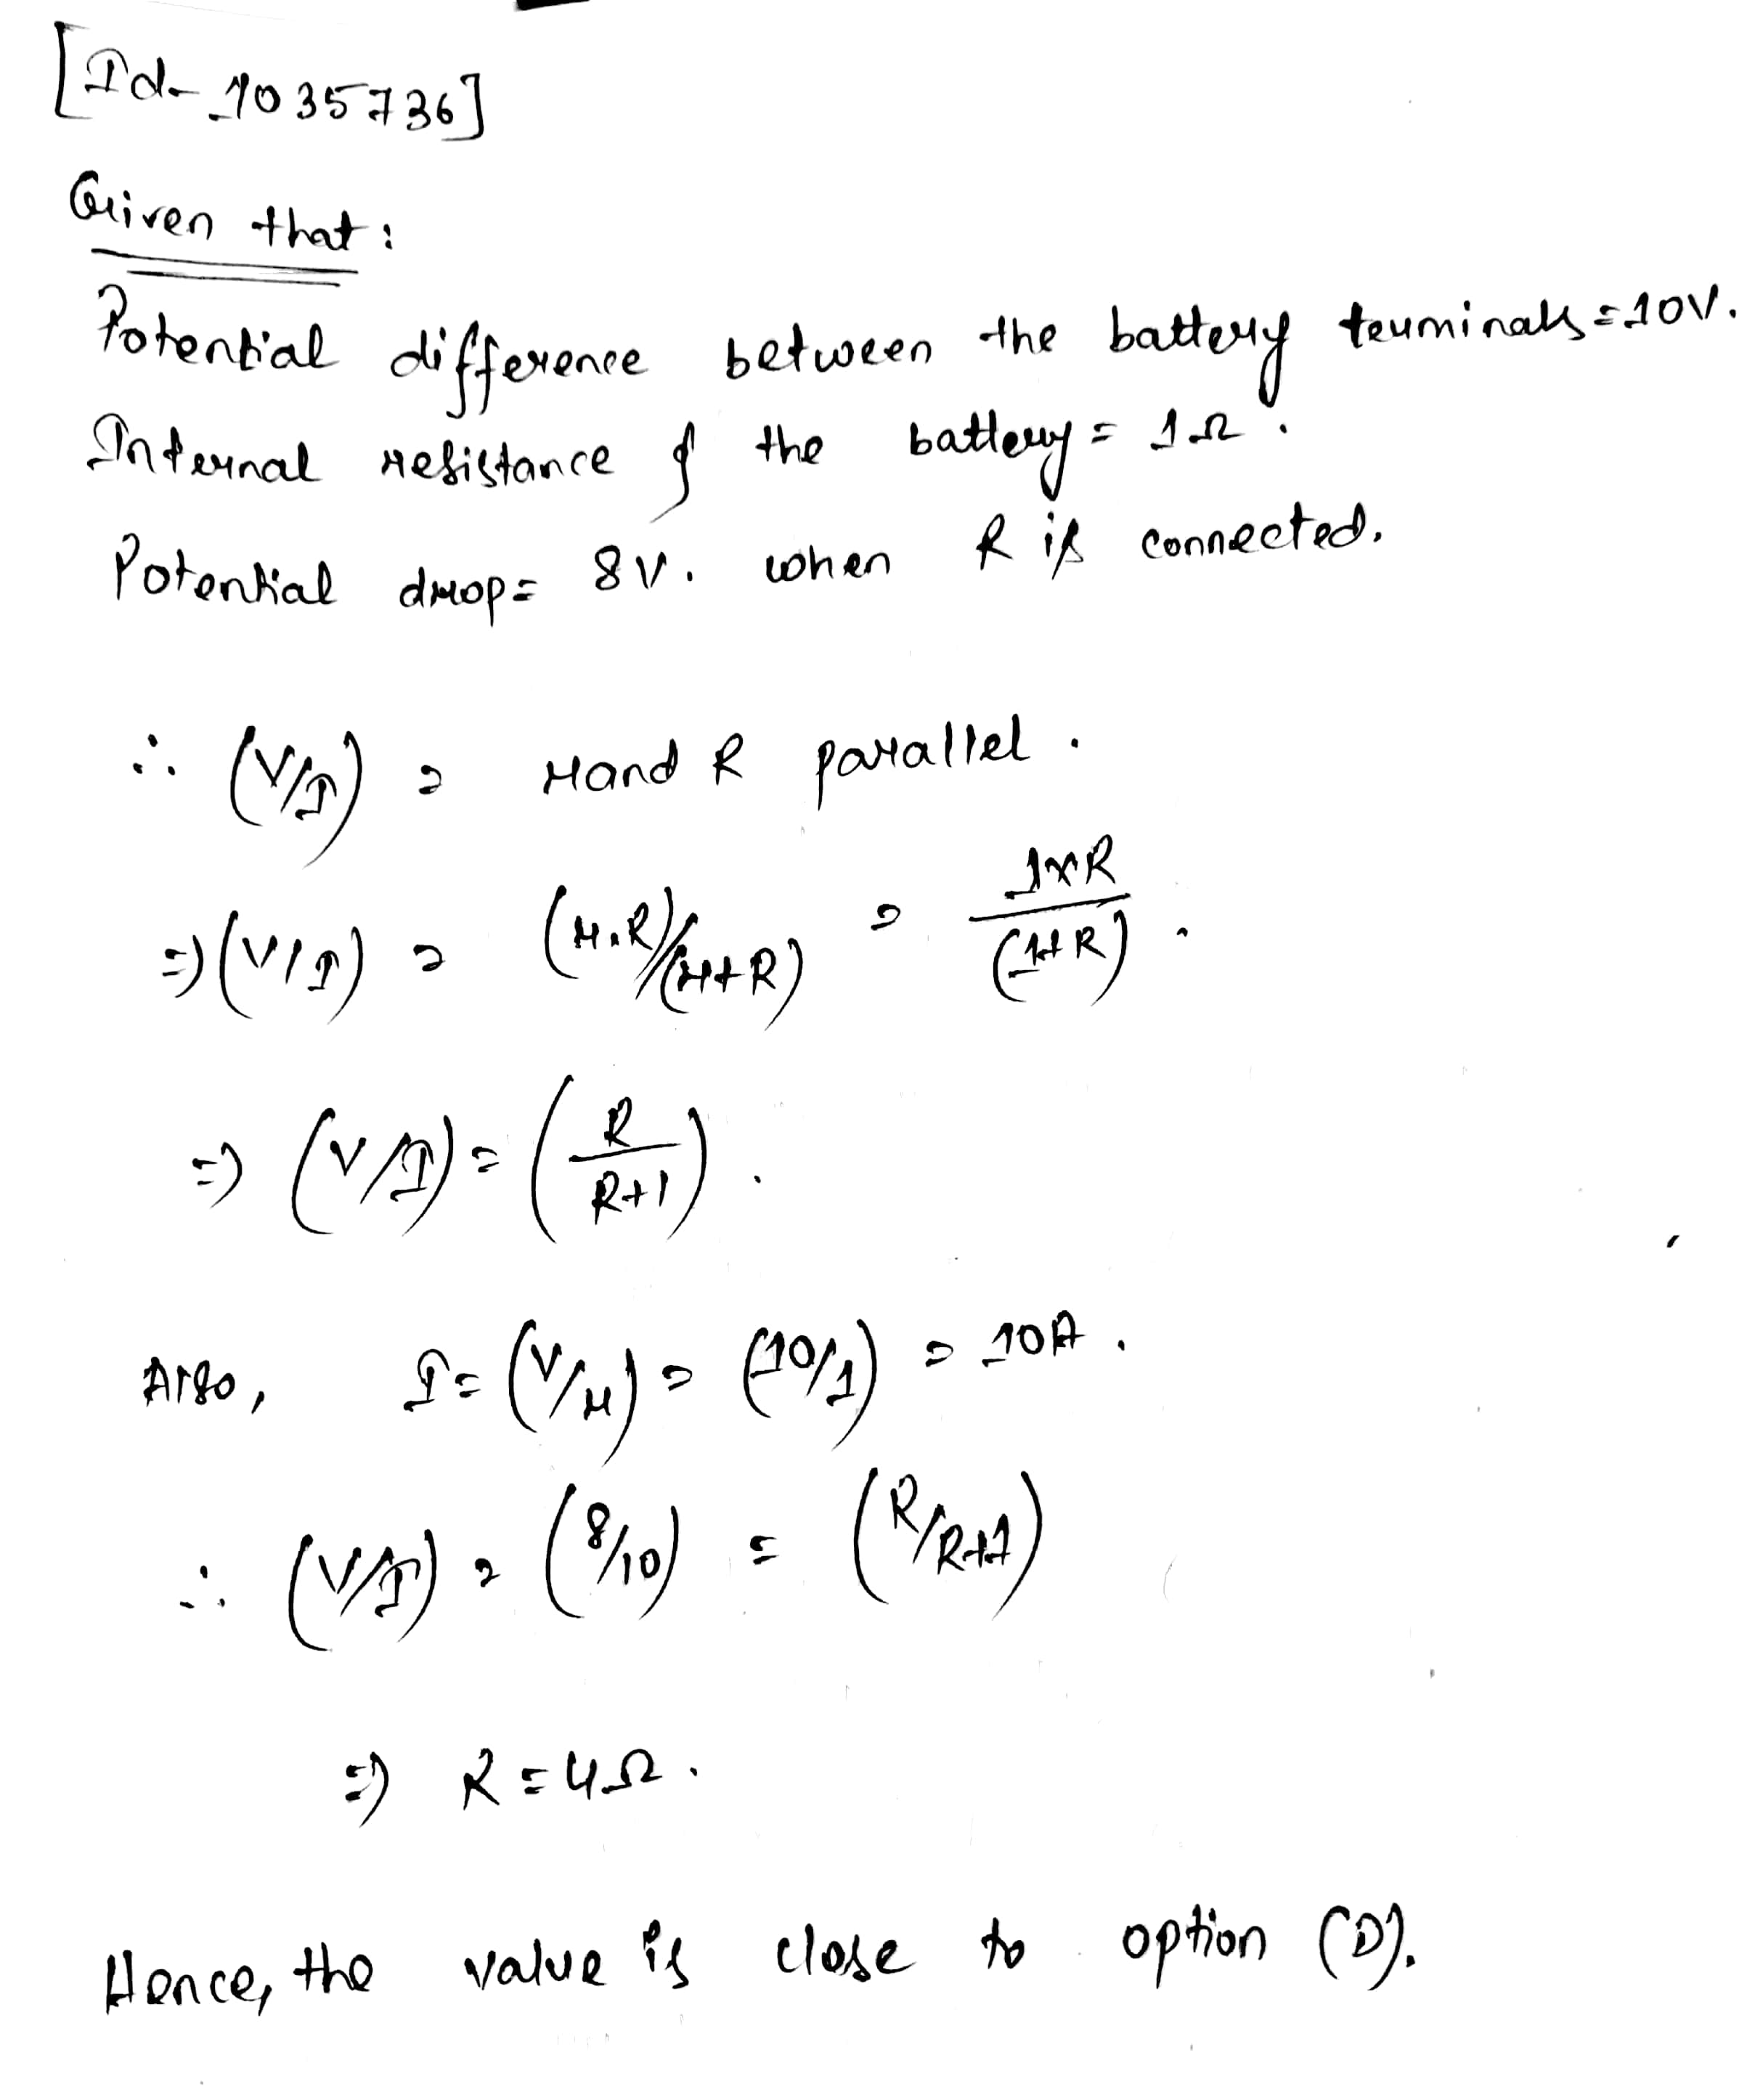 [Id- 1035736]
Given that:
Potential difference between the battery terminals = 10V.
Internal resistance of the battery = 1Ω.
Potential drop = 8V. when R is connected.
∴ (V/I) = r and R parallel.
⇒ (V/I) = (r.R)/(r+R) = 1×R/(1+R).
⇒ (V/I) = (R/R+1).
Also, I = (V/r) = (10/1) = 10A.
∴ (V/I) = (8/10) = (R/R+1)
⇒ R = 4Ω.
Hence, the value is close to option (D).